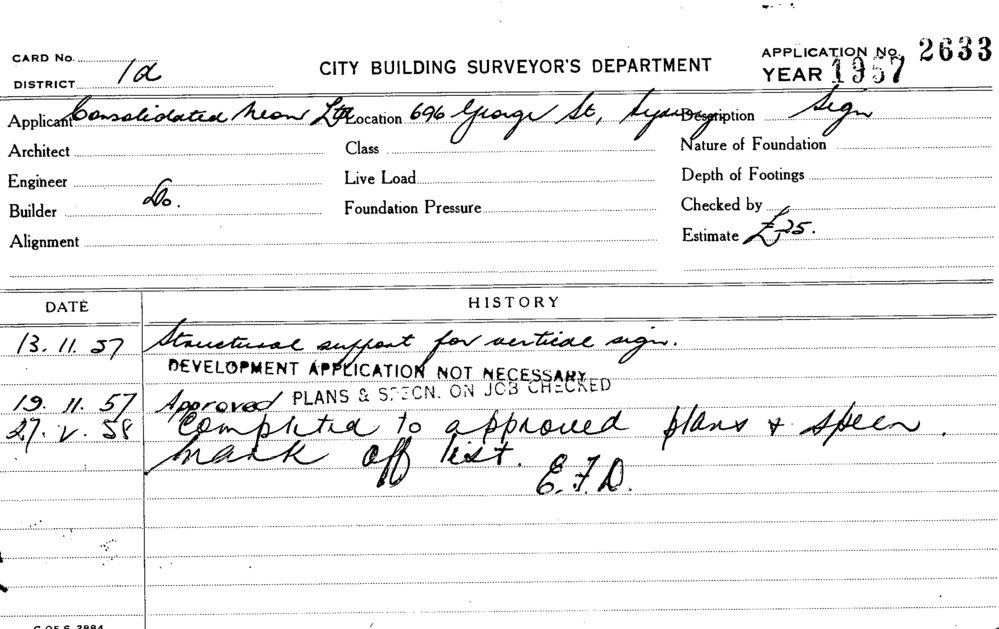 CARD No.
DISTRICT 1d
CITY BUILDING SURVEYOR'S DEPARTMENT
APPLICATION No. 2633
YEAR 1957
Applicant Consolidated Neon Ltd Location 696 George St, Sydney. Description Sign
Architect Class Nature of Foundation
Engineer Live Load Depth of Footings
Builder Do. Foundation Pressure Checked by
Alignment Estimate £75.
DATE HISTORY
13. 11. 57 Structural support for vertical sign.
DEVELOPMENT APPLICATION NOT NECESSARY
19. 11. 57 Approved PLANS & SPECN. ON JOB CHECKED
27. V. 58 Completed to approved plans & specn.
Mark off list.
E.F.D.
C OF S 2884